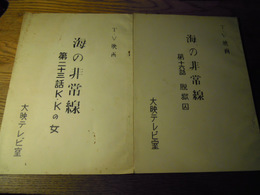 TV映画
海の非常線
第二十三話KKの女
大映テレビ室
TV映画
海の非常線
第十九話 脱獄囚
大映テレビ室